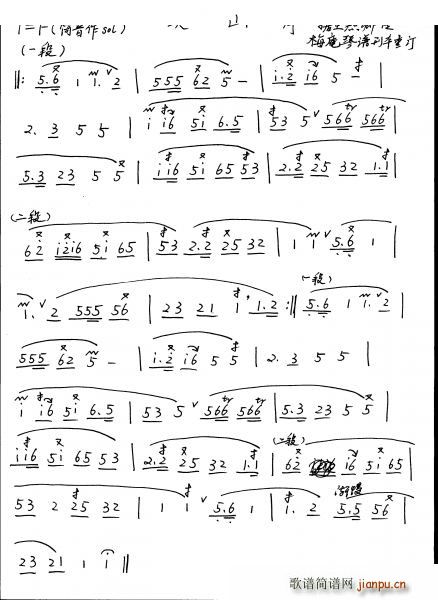 1=F(闷音作sol)
梅庵琴谱
(一段)
‖: 5.6 1 1. 2 | 555 62 5 – | i.2 i6 5 –
2. 3 5 5 | i i6 5i 6.5 | 53 5 ∨ 566 566 |
5.3 23 5 5 | ii6 5i 65 53 | 2.2 25 32 1.1 |
(二段)
62 i2i6 5i 65 | 53 2.2 25 32 | 1 1 ∨ 5.6 1 |
(一段)
1. 2 555 56 | 23 21 1 1.2 :‖ 5.6 1 1. 2 |
555 62 5 – | i.2 i6 5 5 | 2. 3 5 5 |
i i6 5i 6.5 | 53 5 ∨ 566 566 | 5.3 23 5 5 |
(二段)
ii6 5i 65 53 | 2.2 25 32 1.1 | 62 i6 5i 65 |
53 2 25 32 | 1 1 ∨ 5.6 1 | 1. 2 5.5 56 |
渐慢
23 21 1 i ‖
歌谱简谱网
jianpu.cn